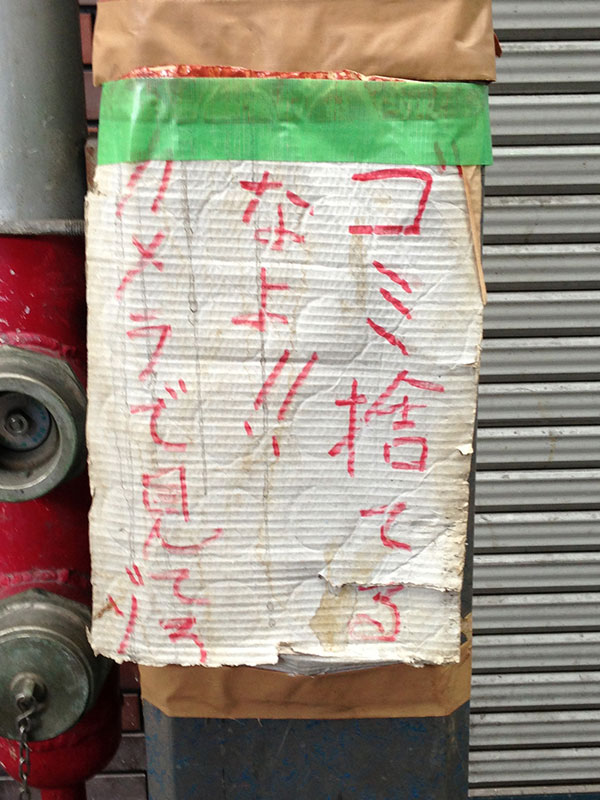 ゴミ捨てる
なよ!!
カメラで見てる
ゾ